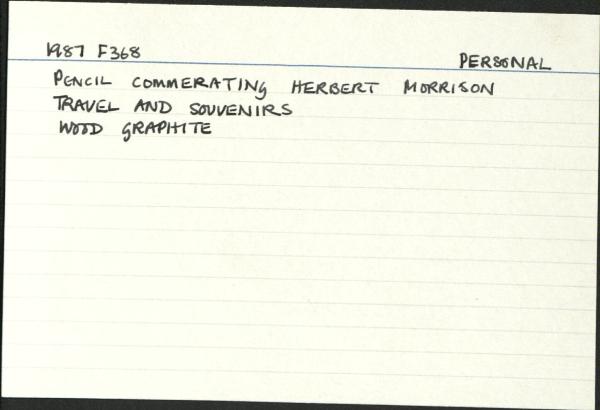 1987 F368 PERSONAL
PENCIL COMMERATING HERBERT MORRISON
TRAVEL AND SOUVENIRS
WOOD GRAPHITE